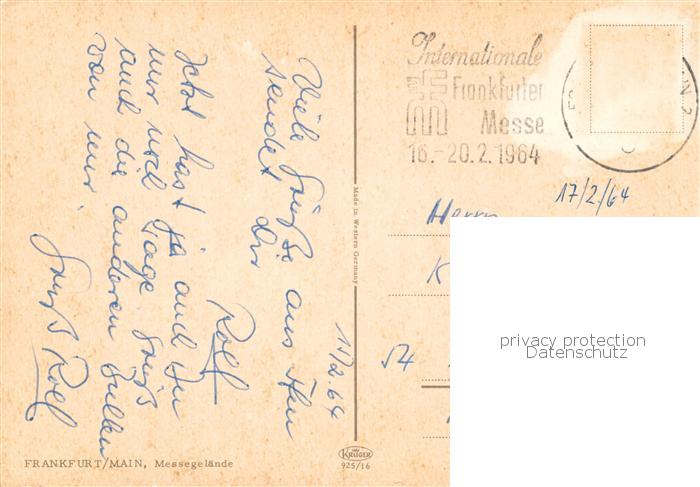 Internationale
Frankfurter
Messe
16.-20.2.1964
17/2/64
Herrn
K
54
privacy protection
Datenschutz
Made in Western Germany
KRÜGER
925/16
FRANKFURT/MAIN, Messegelände
17/2.64
Viele Grüße aus
sendet Dir
Rolf
Jetzt hast ja auch Du
nur noch Tage Grüß
auch die anderen
von mir.
Gruß Rolf